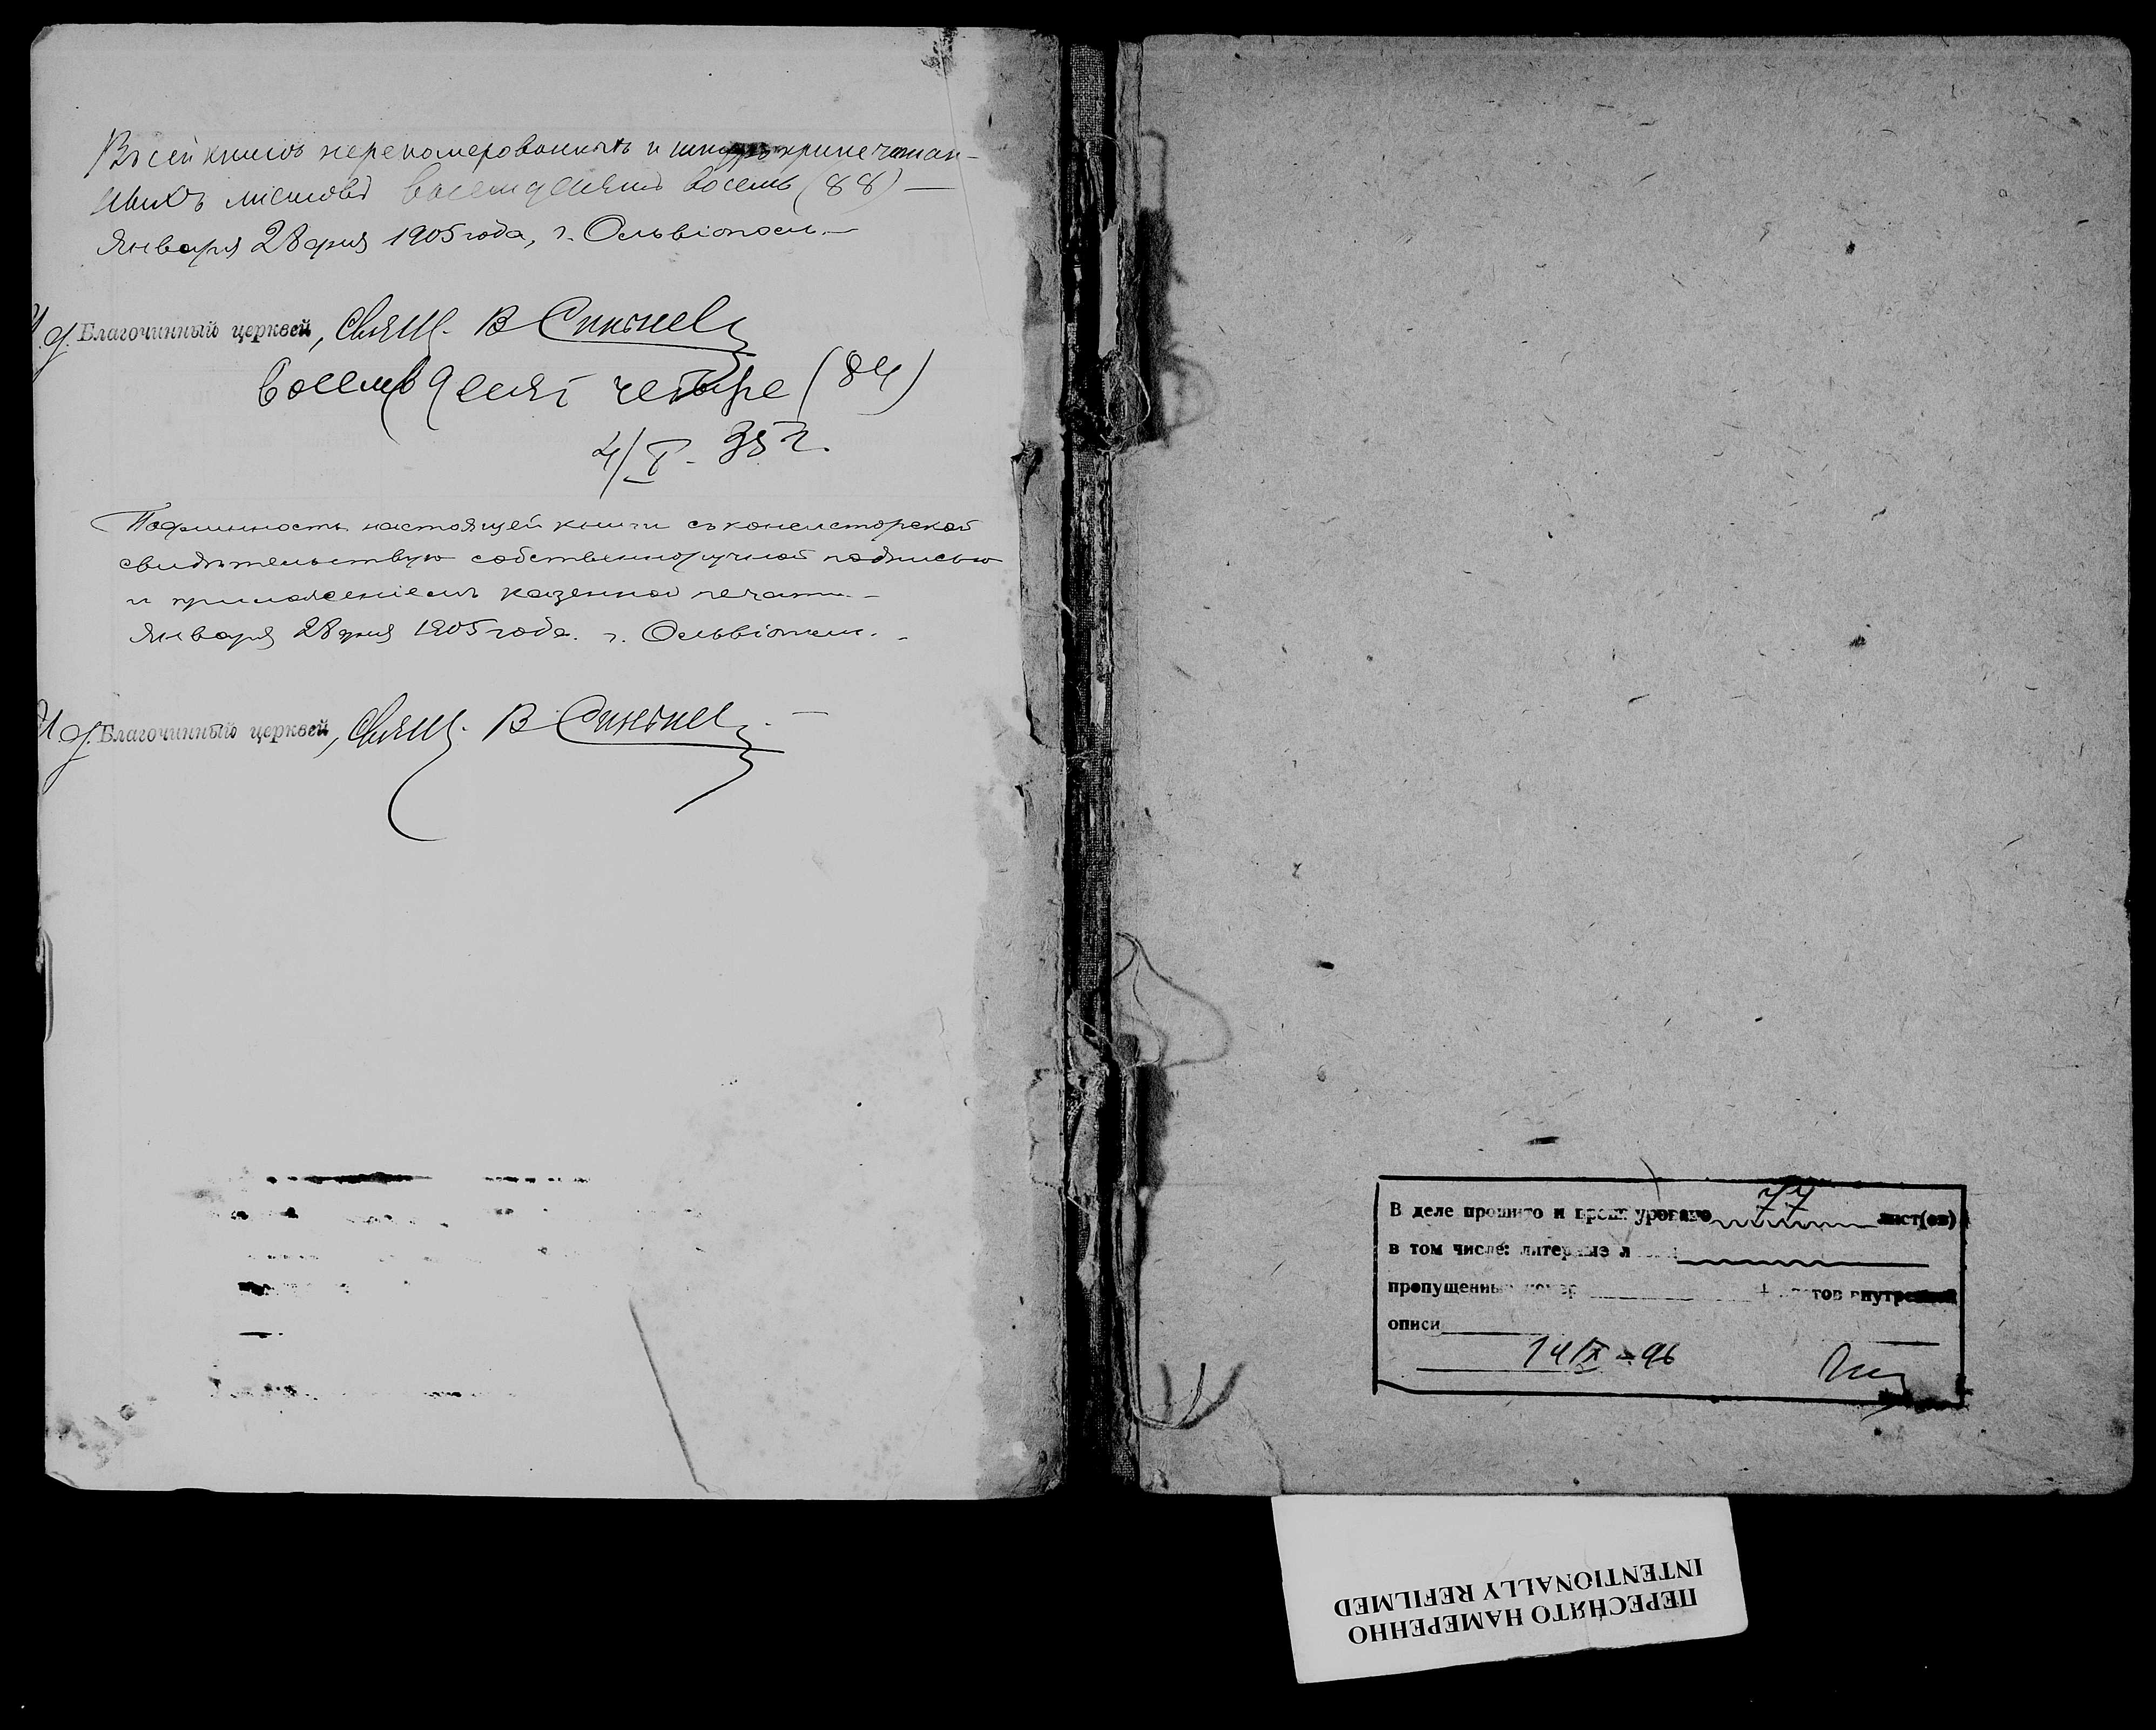 Въ сей книгѣ перенумерованныхъ и шнуроприпечатан-
ныхъ листовъ восемьдесятъ восемь (88) —
Января 28 дня 1905 года, г. Ольвіополь.—
И. д. Благочинный церквей, Свящ. В
восемьдесят четыре (84)
4/V - 35 г.
Подлинность настоящей книги съ консисторской
свидѣтельствую собственноручной подписью
и приложеніемъ казенной печати.—
Января 28 дня 1905 года. г. Ольвіополь.—
И. д. Благочинный церквей, Свящ. В
В деле прошито и пронумеровано 77 лист(ов)
в том числе: литерные л
пропущенные номер + листов внутренней
описи
14/X - 96
ПЕРЕСНЯТО НАМЕРЕННО
INTENTIONALLY REFILMED